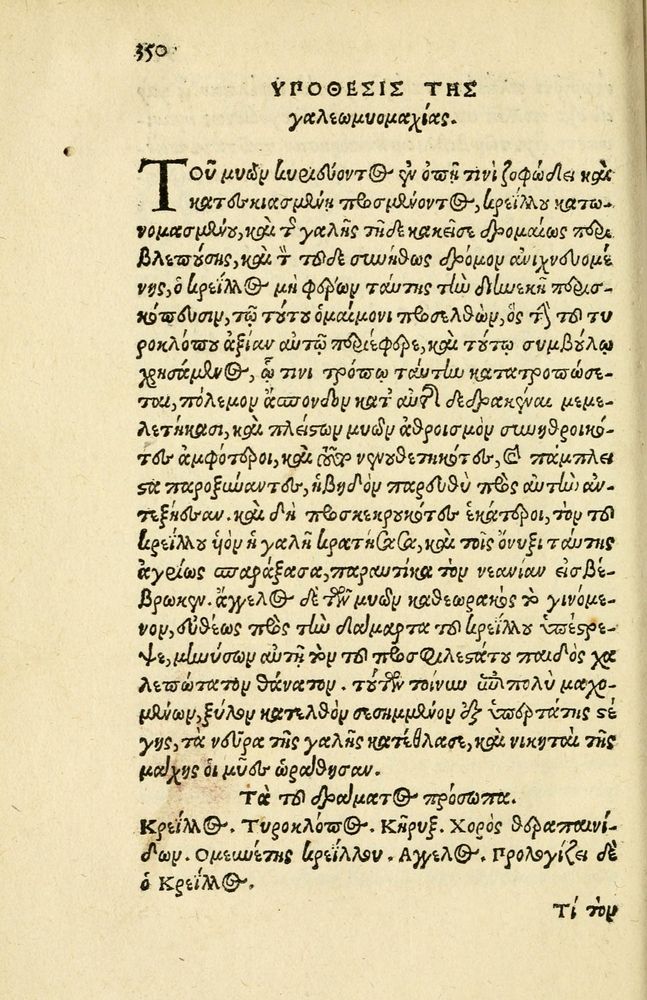 350
ΥΠΟΘΕΣΙΣ ΤΗΣ
γαλεωμυομαχίας.
Τοῦ μυῶν κυριεύοντος ἐν ὀπῇ τινὶ ζοφώδει καὶ
κατεσκιασμένῃ προσμένοντος, κρείλλου κατω-
νομασμένου, καὶ τῆς γαλῆς τῇδε κακεῖσε δρομαίως περι
βλεπούσης, καὶ τὸν τοῦδε συνήθως δρόμον ἀνιχνευομέ
νης, ὁ κρεῖλλος μὴ φέρων ταύτης τὴν διηνεκῆ περισ-
κόπευσιν, τῷ τούτου ὁμαίμονι προσελθὼν, ὃς τὴν τοῦ τυ
ροκλόπου ἀξίαν αὐτῷ περιέφερε, καὶ τούτῳ συμβούλῳ
χρησάμενος, ᾧ τινι τρόπῳ ταύτην κατατροπώσε-
ται, πόλεμον ἄσπονδον κατ' αὐτῆς δεδρακέναι μεμε-
λετήκασι, καὶ πλείστων μυῶν ἀθροισμὸν συνηθροικό-
τες ἀμφότεροι, καὶ νενουθετηκότες, καὶ πάμπλει
στα παροξύναντες, ἡβηδὸν παρευθὺ πρὸς αὐτὴν ἀν-
τεξῆεσαν. καὶ δὴ προσκεκρουκότες ἑκάτεροι, τὸν τοῦ
κρείλλου ὑὸν ἡ γαλῆ κρατήσασα, καὶ τοῖς ὄνυξι ταύτης
ἀγρίως σπαράξασα, παραυτίκα τὸν νεανίαν εἰσβέ-
βρωκεν. ἄγγελος δὲ τῶν μυῶν καθεωρακὼς τὸ γινόμε-
νον, εὐθέως πρὸς τὴν δάμαρτα τοῦ κρείλλου ὑπέστρε-
ψε, μηνύσων αὐτῇ τὸν τοῦ προσφιλεστάτου παιδὸς χα
λεπώτατον θάνατον. τούτων τοίνυν ἐπιπολὺ μαχο-
μένων, ξύλον κατελθὸν σεσημμένον ἐξ ὑπερτάτης στέ
γης, τὰ νεῦρα τῆς γαλῆς κατέθλασε, καὶ νικηταὶ τῆς
μάχης οἱ μῦες ὡράθησαν.
Τὰ τοῦ δράματος πρόσωπα.
Κρεῖλλος. Τυροκλόπος. Κῆρυξ. Χορὸς θεραπαινί-
δων. Ομευνέτης κρείλλου. Αγγελος. Προλογίζει δὲ
ὁ Κρεῖλλος.
Τί τὸν